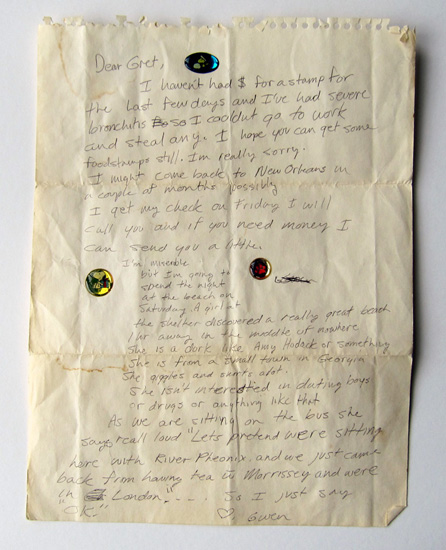 Dear Gret,
I haven't had $ for a stamp for
the last few days and I've had severe
bronchitis so I couldnt go to work
and steal any. I hope you can get some
foodstamps still. I'm really sorry.
I might come back to New Orleans in
a couple of months possibly
I get my check on Friday I will
call you and if you need money I
can send you a little.
I'm miserable
but I'm going to
spend the night
at the beach on
Saturday. A girl at
the shelter discovered a really great beach
1 hr away in the middle of nowhere
She is a dork like Amy or something
She is from a small town in Georgia
She giggles and snorts alot.
She isn't interested in dating boys
or drugs or anything like that
As we are sitting on the bus she
says reall loud "Lets pretend were sitting
here with River Pheonix and we just came
back from having tea w Morrissey and were
in London." .... So I just say
"OK."
♡, Gwen